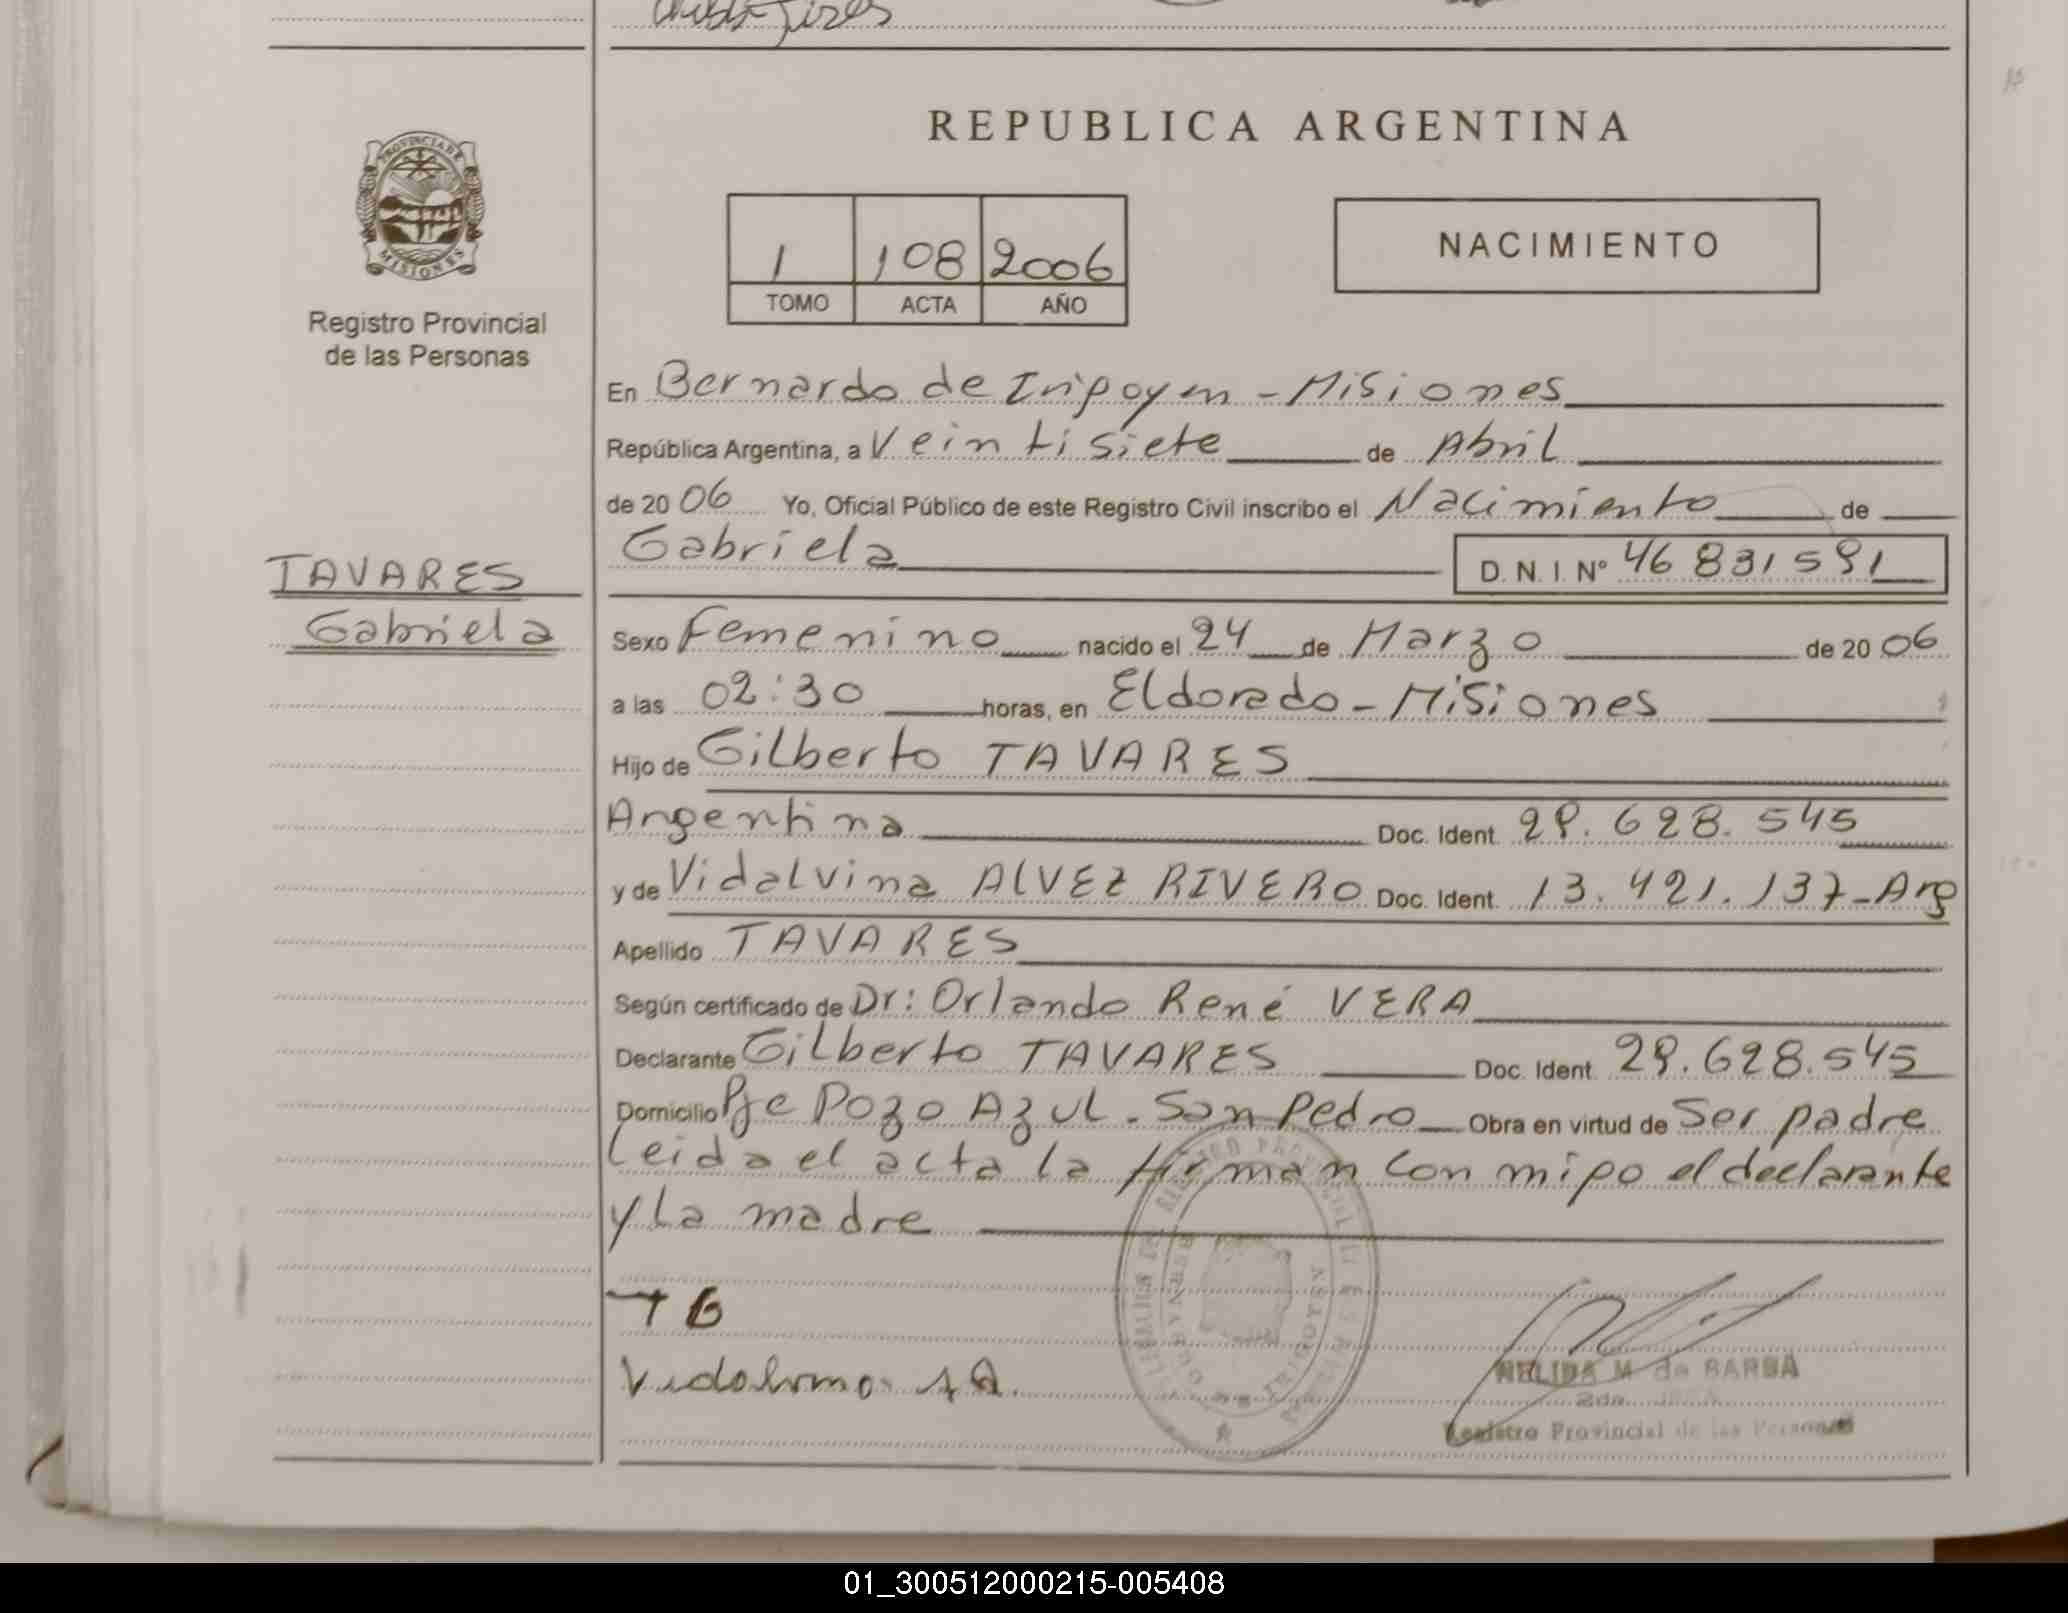 REPUBLICA ARGENTINA
PROVINCIA DE
MISIONES
Registro Provincial
de las Personas
1 108 2006
TOMO ACTA AÑO
NACIMIENTO
En Bernardo de Irigoyen - Misiones
República Argentina, a Veintisiete de Abril
de 2006 Yo, Oficial Público de este Registro Civil inscribo el Nacimiento de
Gabriela D. N. I. Nº 46 831 591
TAVARES
Gabriela
Sexo Femenino nacido el 24 de Marzo de 2006
a las 02:30 horas, en Eldorado - Misiones
Hijo de Gilberto TAVARES
Argentina Doc. Ident. 29.628.545
y de Vidalvina ALVEZ RIVERO Doc. Ident. 13.421.137-Arg
Apellido TAVARES
Según certificado de Dr: Orlando René VERA
Declarante Gilberto TAVARES Doc. Ident. 29.628.545
Domicilio Pje Pozo Azul - San Pedro Obra en virtud de Ser padre
Leida el acta la firman con migo el declarante
y La madre
T G
NELIDA M. de BARBA
Registro Provincial de las Personas
01_300512000215-005408